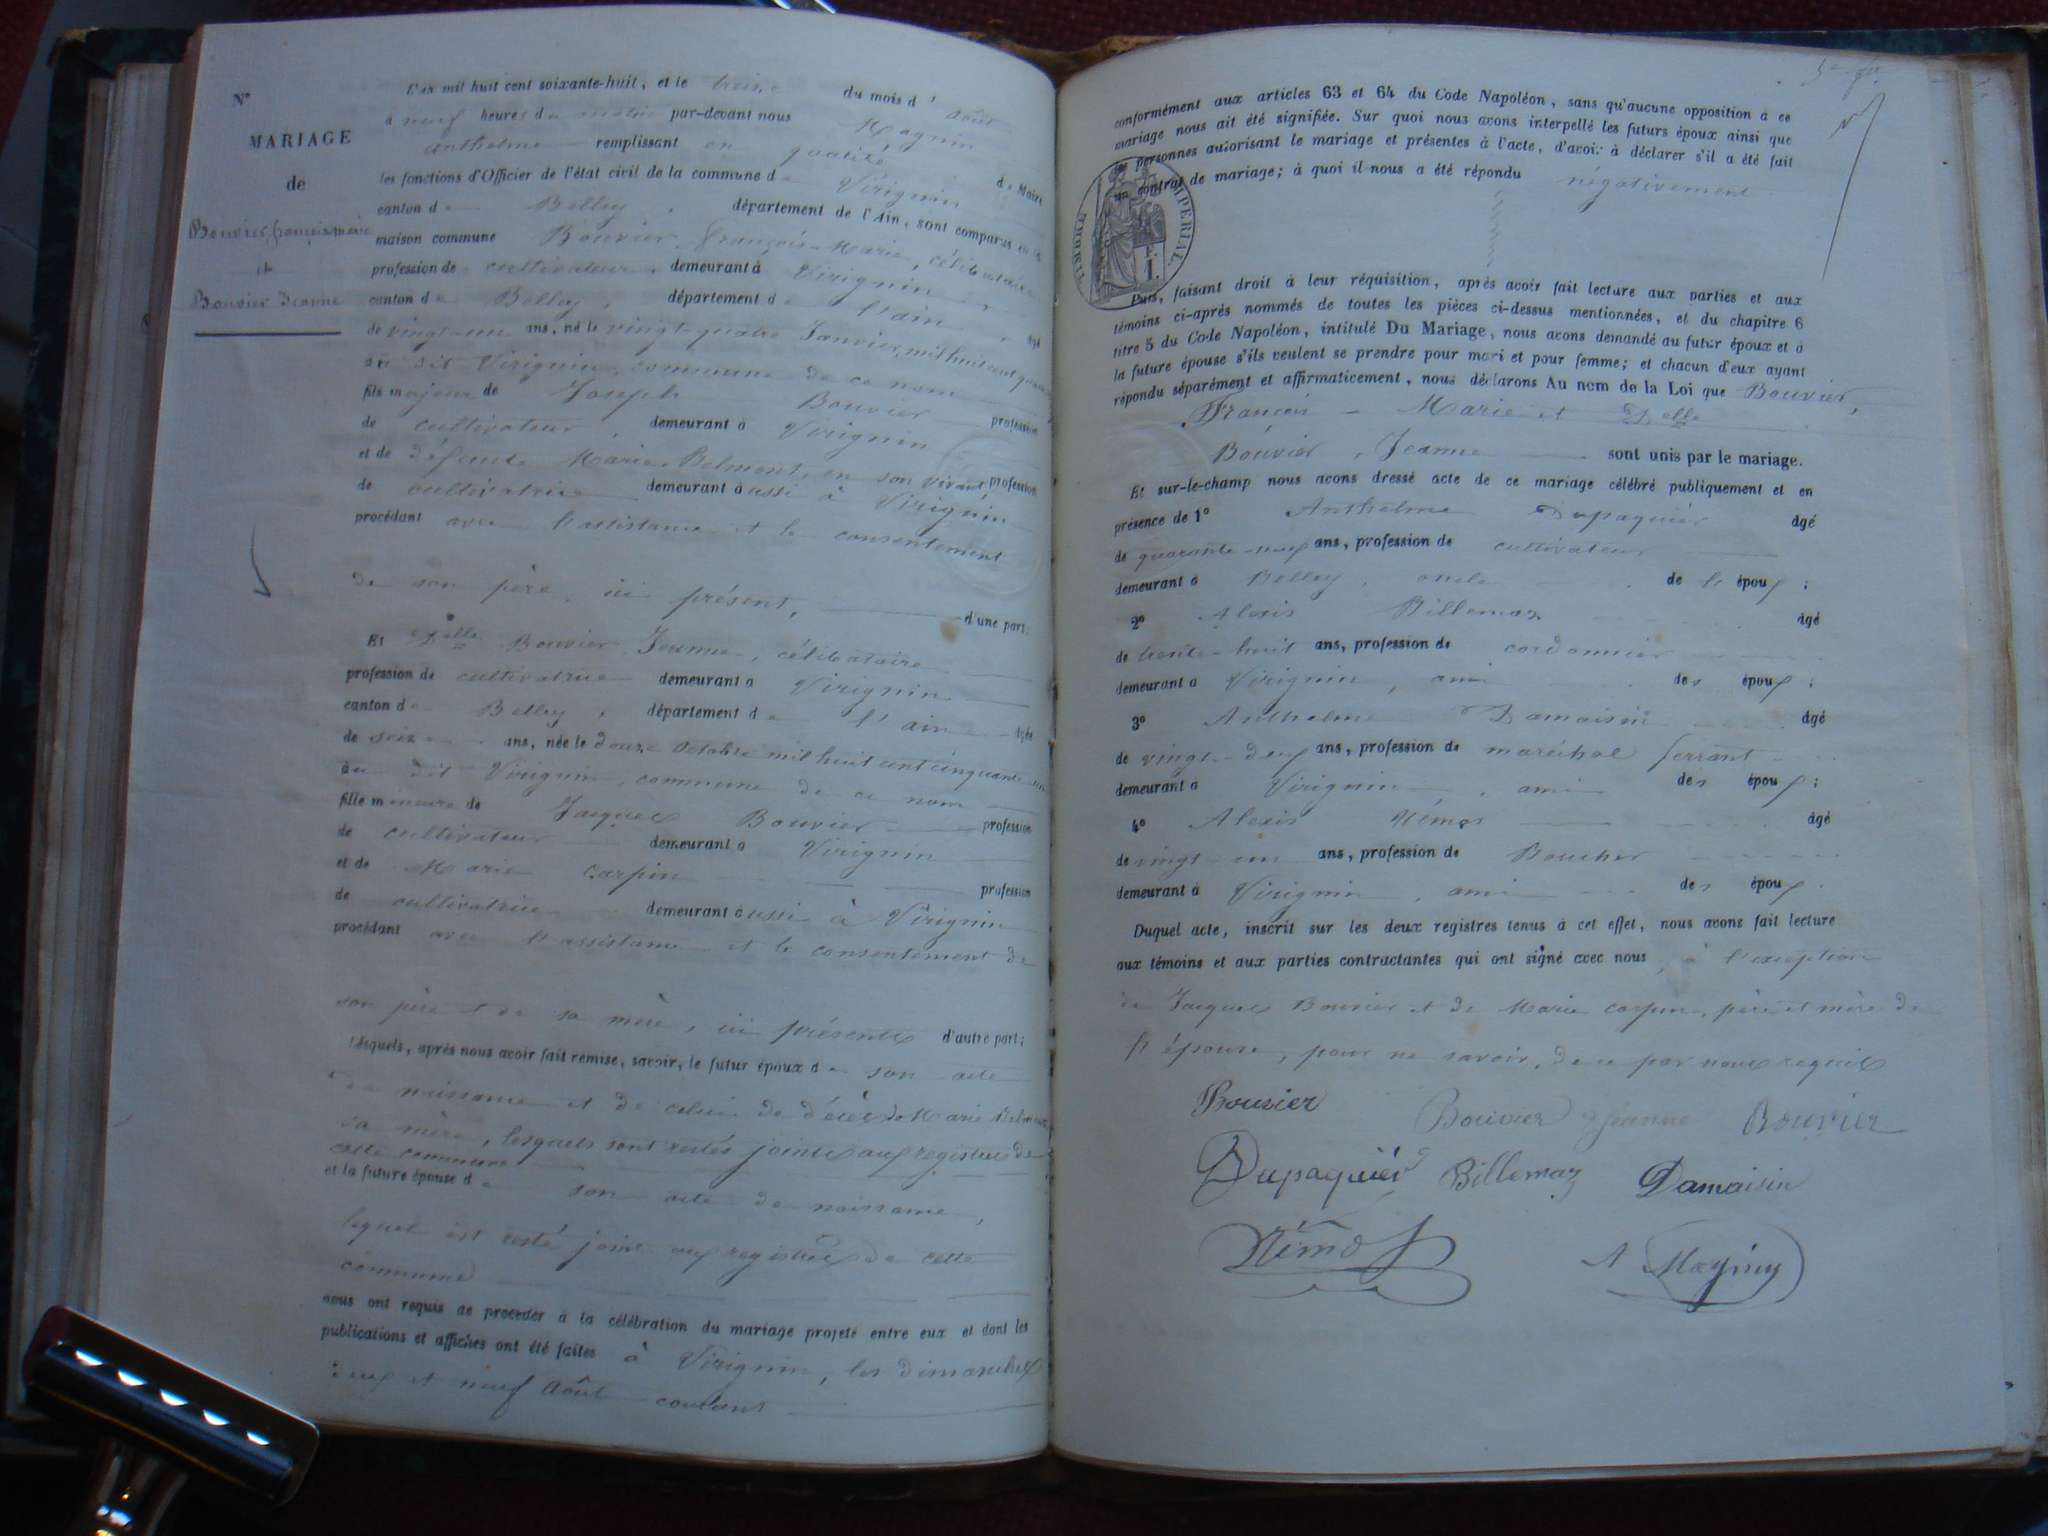 N°
MARIAGE
de
Bouvier françois marie
et
Bouvier Jeanne
L'an mil huit cent soixante-huit, et le treize du mois d'août
à neuf heures du matin par-devant nous Magnin
Anthelme remplissant en qualité de Maire
les fonctions d'Officier de l'état civil de la commune de Virignin
canton de Belley, département de l'Ain, sont comparus en la
maison commune Bouvier, François-Marie, célibataire
profession de cultivateur, demeurant à Virignin
canton de Belley, département de l'ain âgé
de vingt-un ans, né le vingt-quatre Janvier mil huit cent
au dit Virignin, commune de ce nom
fils majeur de Joseph Bouvier profession
de cultivateur, demeurant à Virignin
et de défunte Marie Belmont, en son vivant, profession
de cultivatrice demeurant aussi à Virignin
procédant avec l'assistance et le consentement
de son père, ici présent, d'une part;
Et Delle Bouvier Jeanne, célibataire
profession de cultivatrice demeurant à Virignin
canton de Belley, département de l'ain âgée
de seize ans, née le douze octobre mil huit cent cinquante-un
au dit Virignin, commune de ce nom
fille mineure de Jacques Bouvier profession
de cultivateur demeurant à Virignin
et de Marie Carpin profession
de cultivatrice demeurant aussi à Virignin
procédant avec l'assistance et le consentement de
son père et de sa mère, ici présents d'autre part;
Lesquels, après nous avoir fait remise, savoir, le futur époux de son acte
de naissance et de celui de décès de Marie Belmont
sa mère, lesquels sont restés joints aux registres de
cette commune
et la future épouse de son acte de naissance,
lequel est resté joint aux registres de cette
commune
nous ont requis de procéder à la célébration du mariage projeté entre eux et dont les
publications et affiches ont été faites à Virignin, les dimanches
deux et neuf Août courant
conformément aux articles 63 et 64 du Code Napoléon, sans qu'aucune opposition à ce
mariage nous ait été signifiée. Sur quoi nous avons interpellé les futurs époux ainsi que
les personnes autorisant le mariage et présentes à l'acte, d'avoir à déclarer s'il a été fait
un contrat de mariage; à quoi il nous a été répondu négativement
TIMBRE IMPÉRIAL
1 F.
Puis, faisant droit à leur réquisition, après avoir fait lecture aux parties et aux
témoins ci-après nommés de toutes les pièces ci-dessus mentionnées, et du chapitre 6
titre 5 du Code Napoléon, intitulé Du Mariage, nous avons demandé au futur époux et à
la future épouse s'ils veulent se prendre pour mari et pour femme; et chacun d'eux ayant
répondu séparément et affirmativement, nous déclarons Au nom de la Loi que Bouvier,
François-Marie et Delle
Bouvier, Jeanne sont unis par le mariage.
Et sur-le-champ nous avons dressé acte de ce mariage célébré publiquement et en
présence de 1° Anthelme Dupaquier âgé
de quarante-neuf ans, profession de cultivateur
demeurant à Belley, oncle de l'époux;
2° Alexis Billemaz âgé
de trente-huit ans, profession de cordonnier
demeurant à Virignin, ami des époux;
3° Anthelme Damaisin âgé
de vingt-deux ans, profession de maréchal ferrant
demeurant à Virignin, ami des époux;
4° Alexis Némoz âgé
de vingt-un ans, profession de Boucher
demeurant à Virignin, ami des époux.
Duquel acte, inscrit sur les deux registres tenus à cet effet, nous avons fait lecture
aux témoins et aux parties contractantes qui ont signé avec nous, à l'exception
de Jacques Bouvier et de Marie carpin, père et mère de
l'épouse, pour ne savoir, de ce par nous requis
Bouvier Bouvier Jeanne Bouvier
Dupaquier Billemaz Damaisin
Némoz A Magnin